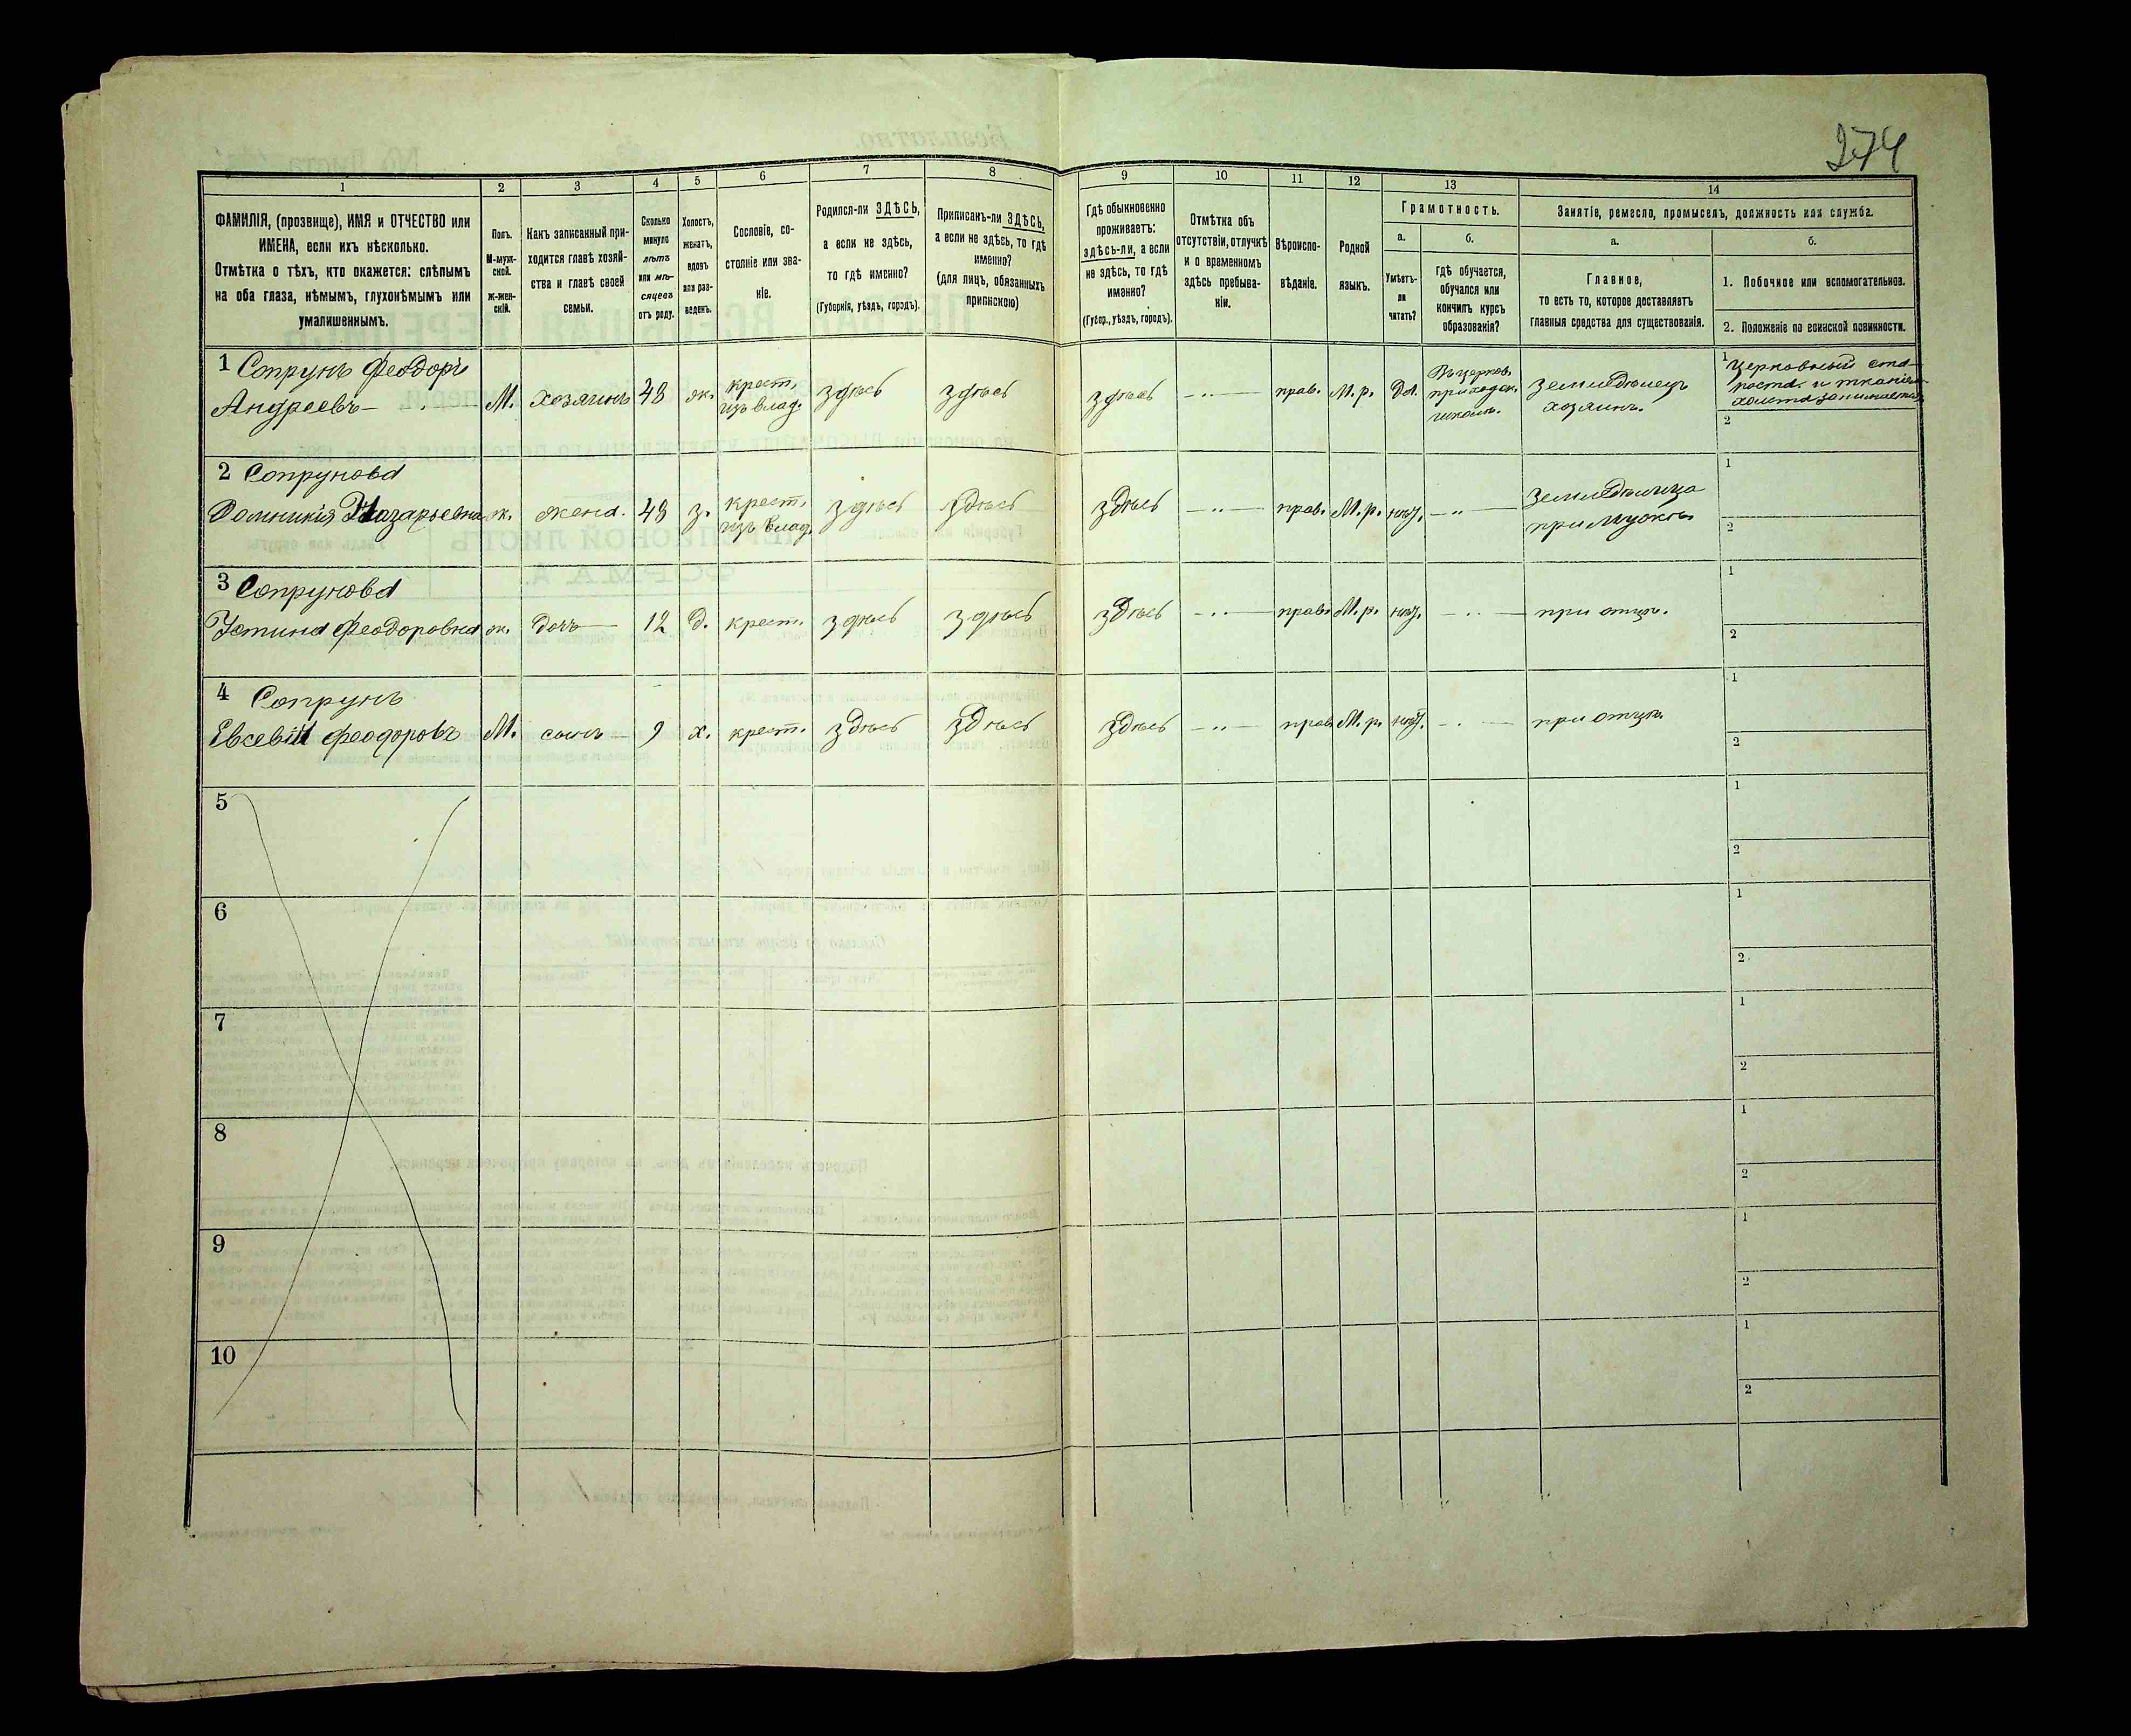 274
1 2 3 4 5 6 7 8 9 10 11 12 13 14
ФАМИЛІЯ, (прозвище), ИМЯ и ОТЧЕСТВО или
ИМЕНА, если ихъ нѣсколько.
Отмѣтка о тѣхъ, кто окажется: слѣпымъ
на оба глаза, нѣмымъ, глухонѣмымъ или
умалишеннымъ.
Полъ.
М-муж-
ской.
ж-жен-
скій.
Какъ записанный при-
ходится главѣ хозяй-
ства и главѣ своей
семьи.
Сколько
минуло
лѣтъ
или мѣ-
сяцевъ
отъ роду.
Холостъ,
женатъ,
вдовъ
или раз-
веденъ.
Сословіе, со-
стояніе или зва-
ніе.
Родился-ли ЗДѢСЬ,
а если не здѣсь,
то гдѣ именно?
(Губернія, уѣздъ, городъ).
Приписанъ-ли ЗДѢСЬ,
а если не здѣсь, то гдѣ
именно?
(для лицъ, обязанныхъ
припискою)
Гдѣ обыкновенно
проживаетъ:
здѣсь-ли, а если
не здѣсь, то гдѣ
именно?
(Губер., уѣздъ, городъ).
Отмѣтка объ
отсутствіи, отлучкѣ
и о временномъ
здѣсь пребыва-
ніи.
Вѣроиспо-
вѣданіе.
Родной
языкъ.
Грамотность.
а.
Умѣетъ-
ли
читать?
б.
гдѣ обучается,
обучался или
кончилъ курсъ
образованія?
Занятіе, ремесло, промыселъ, должность или служба.
а.
Главное,
то есть то, которое доставляетъ
главныя средства для существованія.
б.
1. Побочное или вспомогательное.
2. Положеніе по воинской повинности.
1 Сопрунъ Феодоръ
Андреевъ
М. хозяинъ 48 ж.
крест.
изъ влад.
здѣсь здѣсь здѣсь —„— прав. М.р. да.
Въ церков.
приходск.
школѣ.
земледѣлецъ
хозяинъ.
1 Церковный ста-
роста и тканіемъ
холста занимается
2
2 Сопрунова
Домникія Назарьевна
ж. жена. 48 з.
крест.
изъ влад.
здѣсь здѣсь здѣсь —„— прав. М.р. нѣт. —„—
земледѣлица
при мужѣ.
1
2
3 Сопрунова
Устина Феодоровна
ж. дочь 12 д. крест. здѣсь здѣсь здѣсь —„— прав. М.р. нѣт. —„— при отцѣ.
1
2
4 Сопрунъ
Евсевій Феодоровъ
М. сынъ 9 х. крест. здѣсь здѣсь здѣсь —„— прав. М.р. нѣт. —„— при отцѣ.
1
2
5
1
2
6
1
2
7
1
2
8
1
2
9
1
2
10
1
2